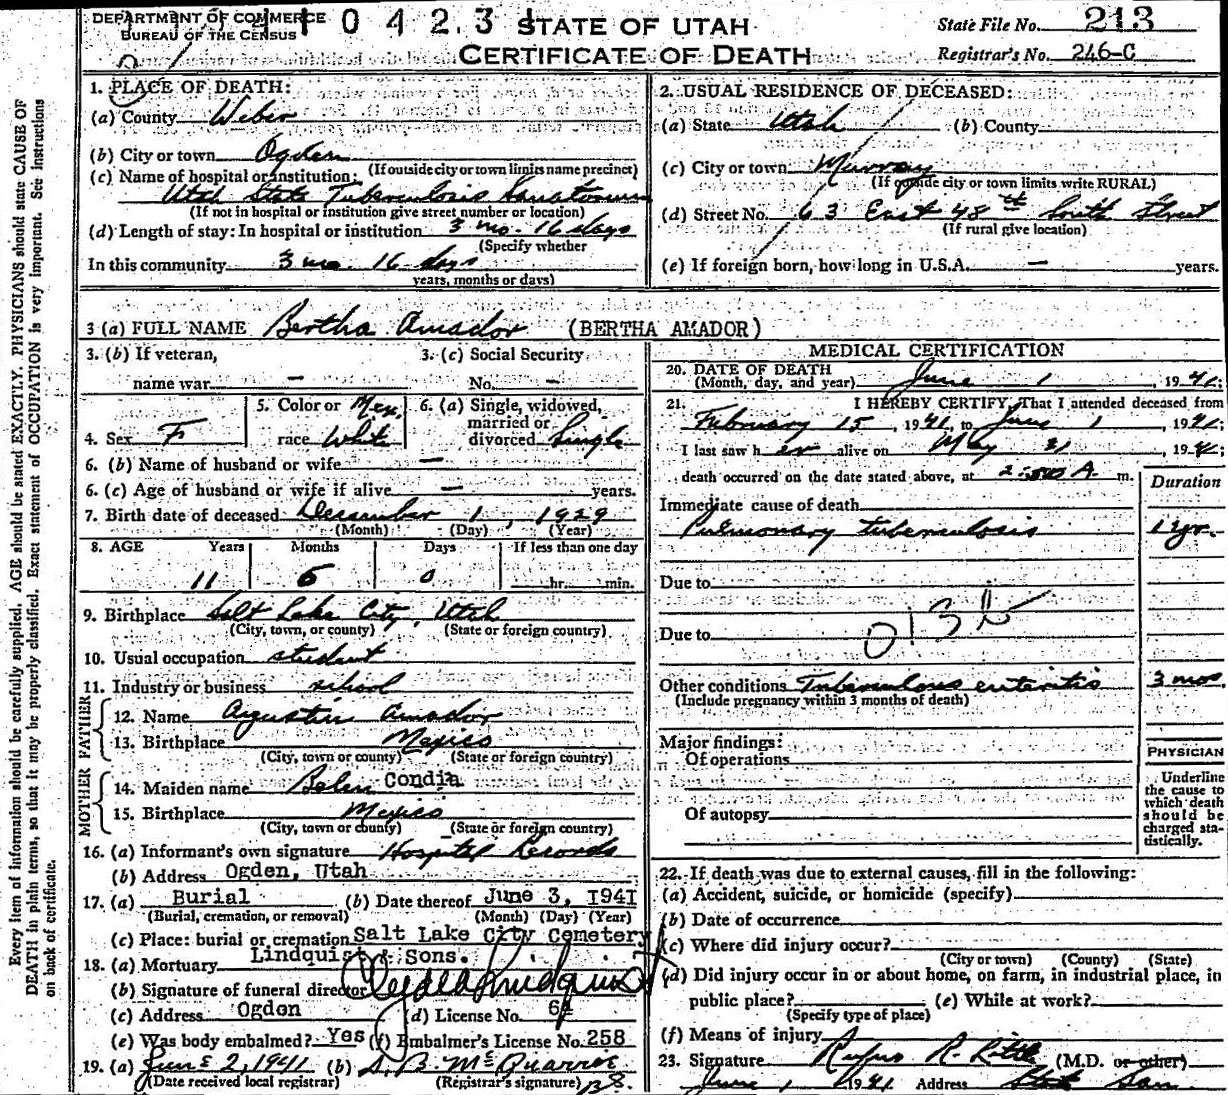 DEPARTMENT OF COMMERCE
BUREAU OF THE CENSUS
1 0 4 2 3 1
STATE OF UTAH
CERTIFICATE OF DEATH
State File No. 213
Registrar's No. 246-C
Every item of information should be carefully supplied. AGE should be stated EXACTLY. PHYSICIANS should state CAUSE OF
DEATH in plain terms, so that it may be properly classified. Exact statement of OCCUPATION is very important. See instructions
on back of certificate.
1. PLACE OF DEATH:
(a) County Weber
(b) City or town Ogden
(If outside city or town limits name precinct)
(c) Name of hospital or institution:
Utah State Tuberculosis Sanatorium
(If not in hospital or institution give street number or location)
(d) Length of stay: In hospital or institution 3 mo. 16 days
(Specify whether
In this community 3 mo. 16 days
years, months or days)
2. USUAL RESIDENCE OF DECEASED:
(a) State Utah (b) County
(c) City or town Murray
(If outside city or town limits write RURAL)
(d) Street No. 63 East 48th South Street
(If rural give location)
(e) If foreign born, how long in U.S.A. — years.
3 (a) FULL NAME Bertha Amador (BERTHA AMADOR)
3. (b) If veteran,
name war —
3. (c) Social Security
No. —
4. Sex F
5. Color or Mex.
race White
6. (a) Single, widowed,
married or
divorced Single
6. (b) Name of husband or wife —
6. (c) Age of husband or wife if alive — years.
7. Birth date of deceased December 1, 1929
(Month) (Day) (Year)
8. AGE Years Months Days If less than one day
11 6 0 hr. min.
9. Birthplace Salt Lake City, Utah
(City, town, or county) (State or foreign country)
10. Usual occupation student
11. Industry or business school
FATHER
12. Name Augustin Amador
13. Birthplace Mexico
(City, town or county) (State or foreign country)
MOTHER
14. Maiden name Belen Condia
15. Birthplace Mexico
(City, town or county) (State or foreign country)
16. (a) Informant's own signature Hospital Records
(b) Address Ogden, Utah
17. (a) Burial (b) Date thereof June 3, 1941
(Burial, cremation, or removal) (Month) (Day) (Year)
(c) Place: burial or cremation Salt Lake City Cemetery
18. (a) Mortuary Lindquist & Sons.
(b) Signature of funeral director
(c) Address Ogden (d) License No. 64
(e) Was body embalmed? Yes (f) Embalmer's License No. 258
19. (a) June 2, 1941 (b) D. B. McQuarrie
(Date received local registrar) (Registrar's signature)
MEDICAL CERTIFICATION
20. DATE OF DEATH
(Month, day, and year) June 1, 1941;
21. I HEREBY CERTIFY, That I attended deceased from
February 15, 1941, to June 1, 1941;
I last saw her alive on May 31, 1941;
death occurred on the date stated above, at A. m.
Duration
Immediate cause of death
Pulmonary tuberculosis 1 yr.
Due to
Due to
Other conditions Tuberculous enteritis 3 mos
(Include pregnancy within 3 months of death)
Major findings:
Of operations
Of autopsy
PHYSICIAN
Underline
the cause to
which death
should be
charged sta-
tistically.
22. If death was due to external causes, fill in the following:
(a) Accident, suicide, or homicide (specify)
(b) Date of occurrence
(c) Where did injury occur?
(City or town) (County) (State)
(d) Did injury occur in or about home, on farm, in industrial place, in
public place? (e) While at work?
(Specify type of place)
(f) Means of injury
23. Signature Rufus R. Little (M.D. or other)
June 1 1941 Address State San.